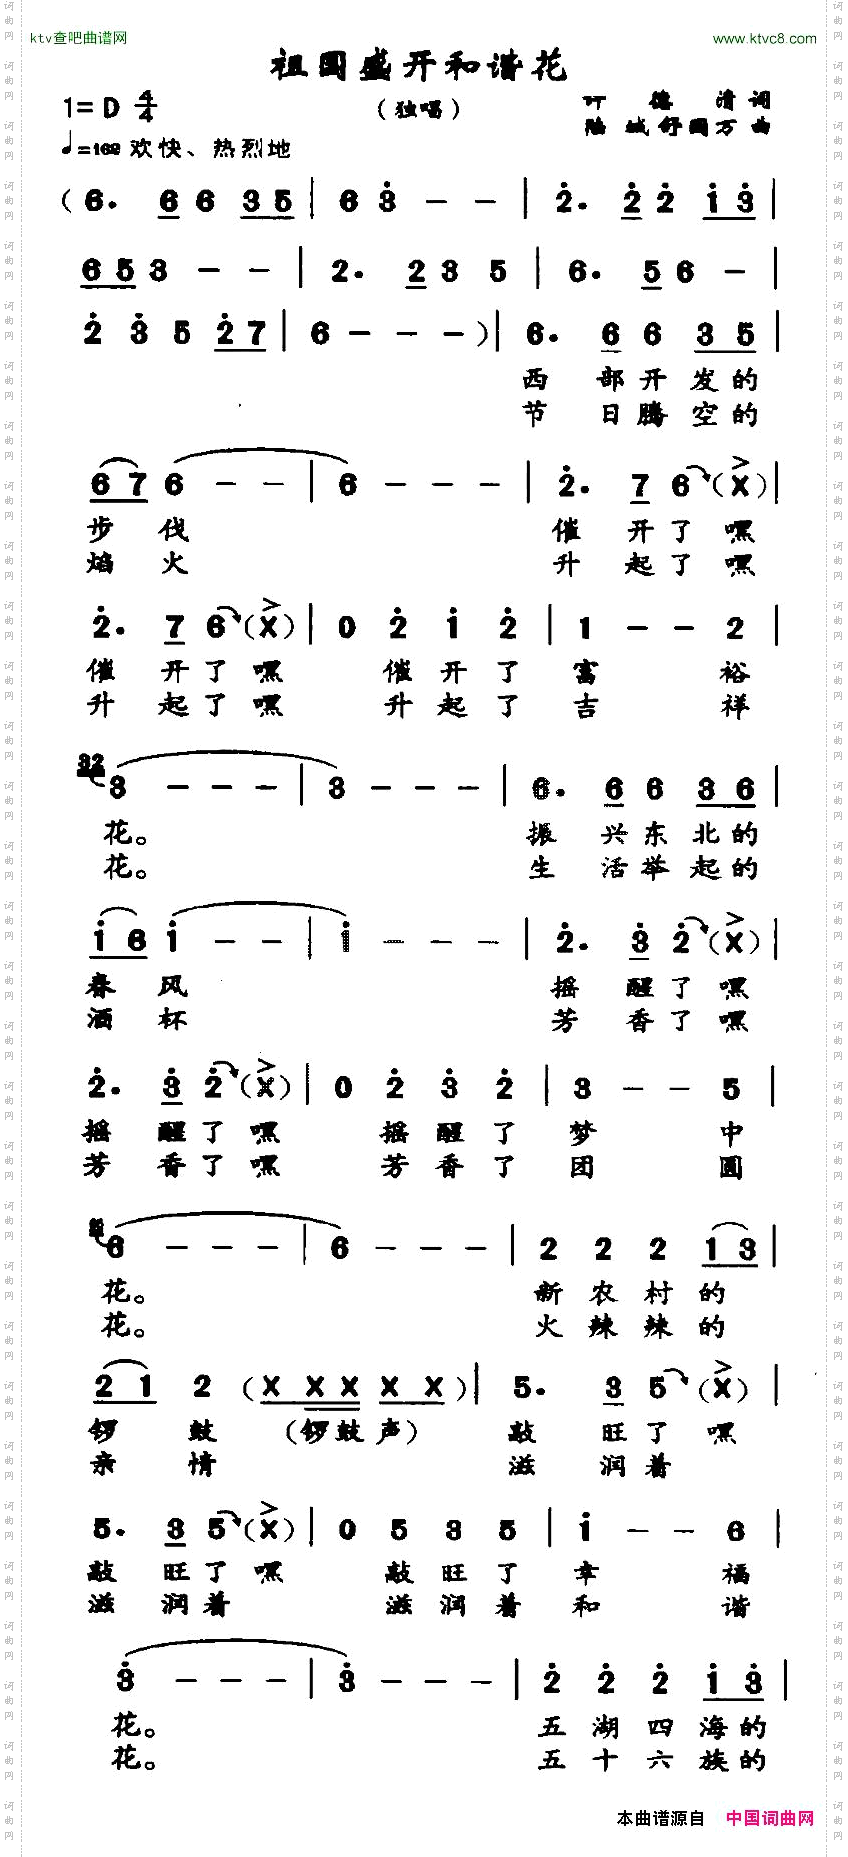 ktv查吧曲谱网
www.ktvc8.com
祖国盛开和谐花
1=D 4/4
（独唱）
叶德清词
陆城舒国万曲
♩=162 欢快、热烈地
(6. 6 6 3 5 | 6 3 - - | 2. 2 2 1 3 |
6 5 3 - - | 2. 2 3 5 | 6. 5 6 - |
2 3 5 2 7 | 6 - - - ) | 6. 6 6 3 5 |
西部开发的
节日腾空的
6 7 6 - - | 6 - - - | 2. 7 6 (X) |
步伐 催开了嘿
焰火 升起了嘿
2. 7 6 (X) | 0 2 1 2 | 1 - - 2 |
催开了嘿 催开了富裕
升起了嘿 升起了吉祥
32 3 - - - | 3 - - - | 6. 6 6 3 6 |
花。 振兴东北的
花。 生活举起的
1 6 1 - - | 1 - - - | 2. 3 2 (X) |
春风 摇醒了嘿
酒杯 芳香了嘿
2. 3 2 (X) | 0 2 3 2 | 3 - - 5 |
摇醒了嘿 摇醒了梦中
芳香了嘿 芳香了团圆
6 - - - | 6 - - - | 2 2 2 1 3 |
花。 新农村的
花。 火辣辣的
2 1 2 (X X X X X) | 5. 3 5 (X) |
锣鼓 （锣鼓声） 敲旺了嘿
亲情 滋润着
5. 3 5 (X) | 0 5 3 5 | 1 - - 6 |
敲旺了嘿 敲旺了幸福
滋润着 滋润着和谐
3 - - - | 3 - - - | 2 2 2 1 3 |
花。 五湖四海的
花。 五十六族的
本曲谱源自 中国词曲网